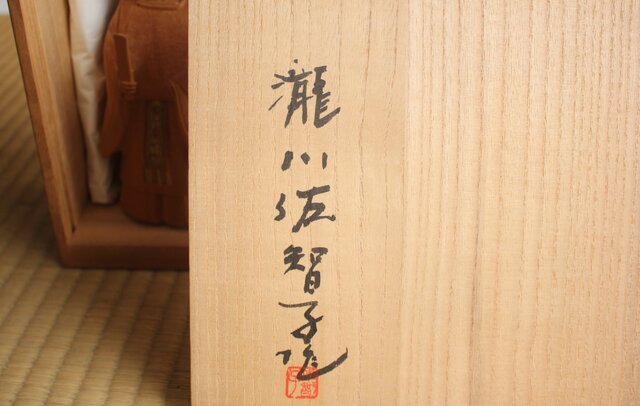 瀧川佐智子作